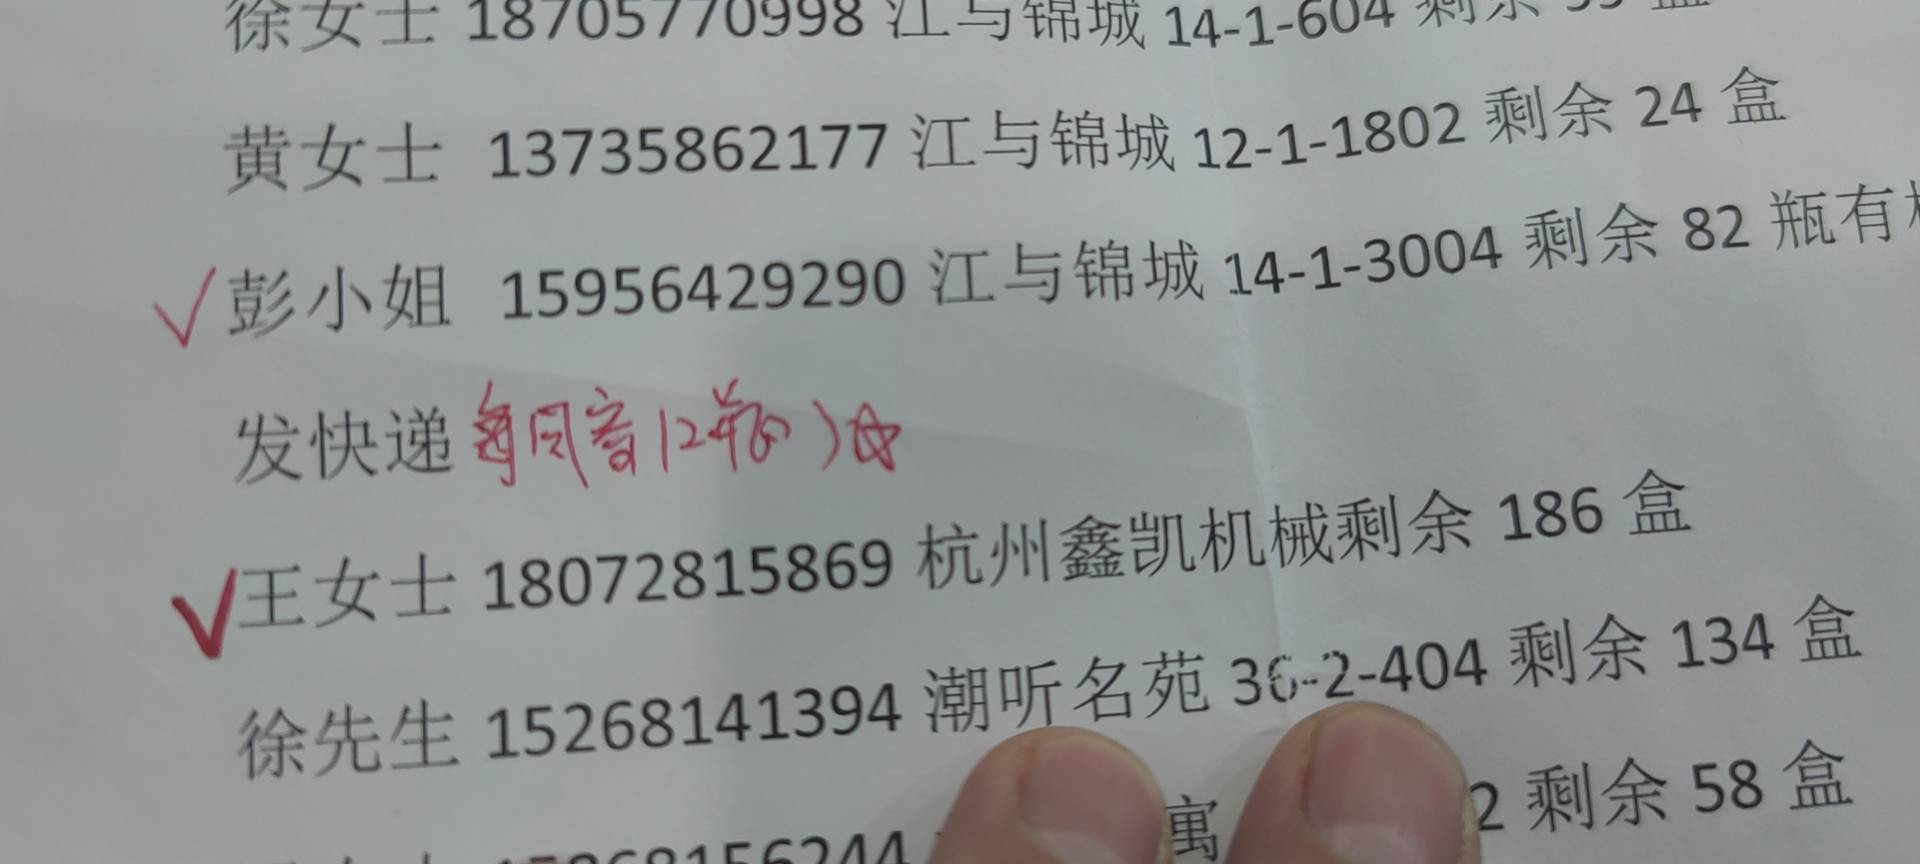 徐女士 18705770998 江与锦城 14-1-604 剩余
黄女士 13735862177 江与锦城 12-1-1802 剩余 24 盒
彭小姐 15956429290 江与锦城 14-1-3004 剩余 82 瓶有
发快递 每周寄12瓶
王女士 18072815869 杭州鑫凯机械剩余 186 盒
徐先生 15268141394 潮听名苑 36-2-404 剩余 134 盒
寓 2 剩余 58 盒